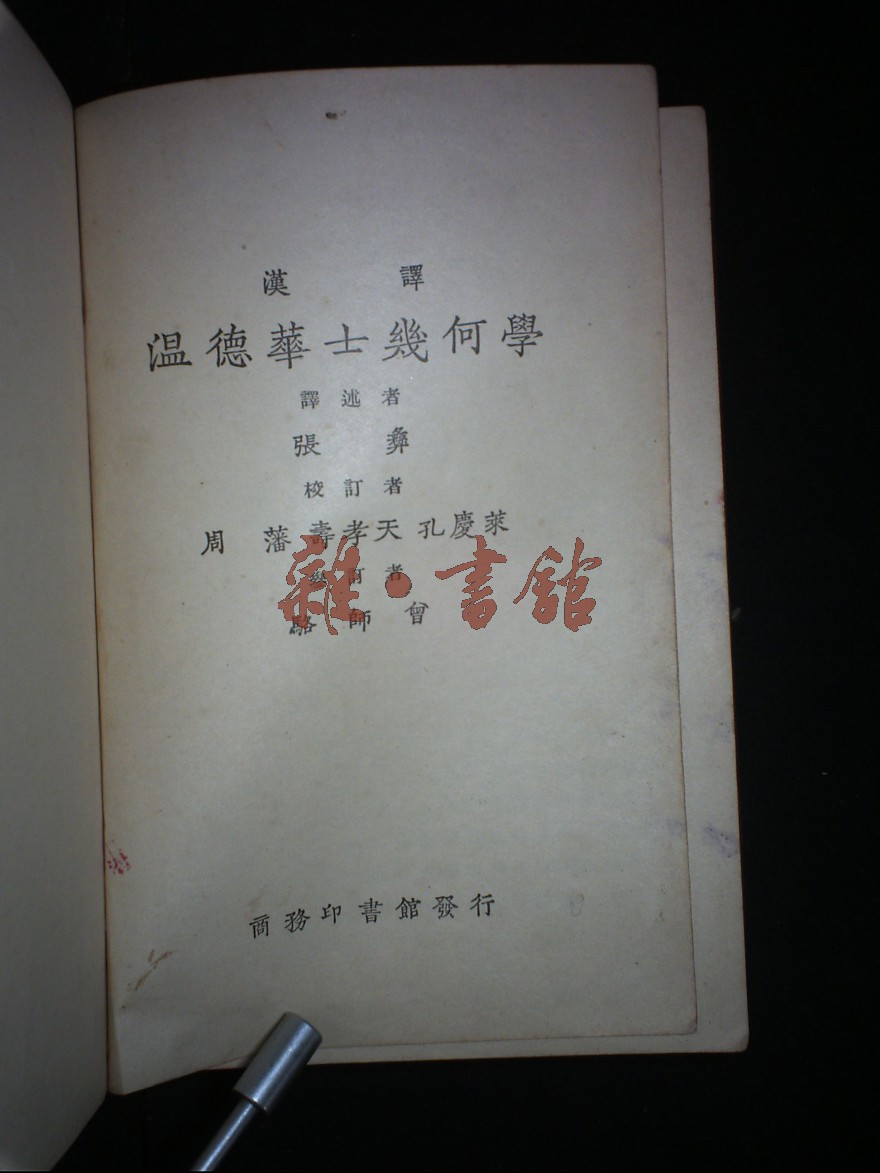 漢譯
温德華士幾何學
譯述者
張彝
校訂者
周藩 壽孝天 孔慶萊
者
駱師曾
雜·書館
商務印書館發行